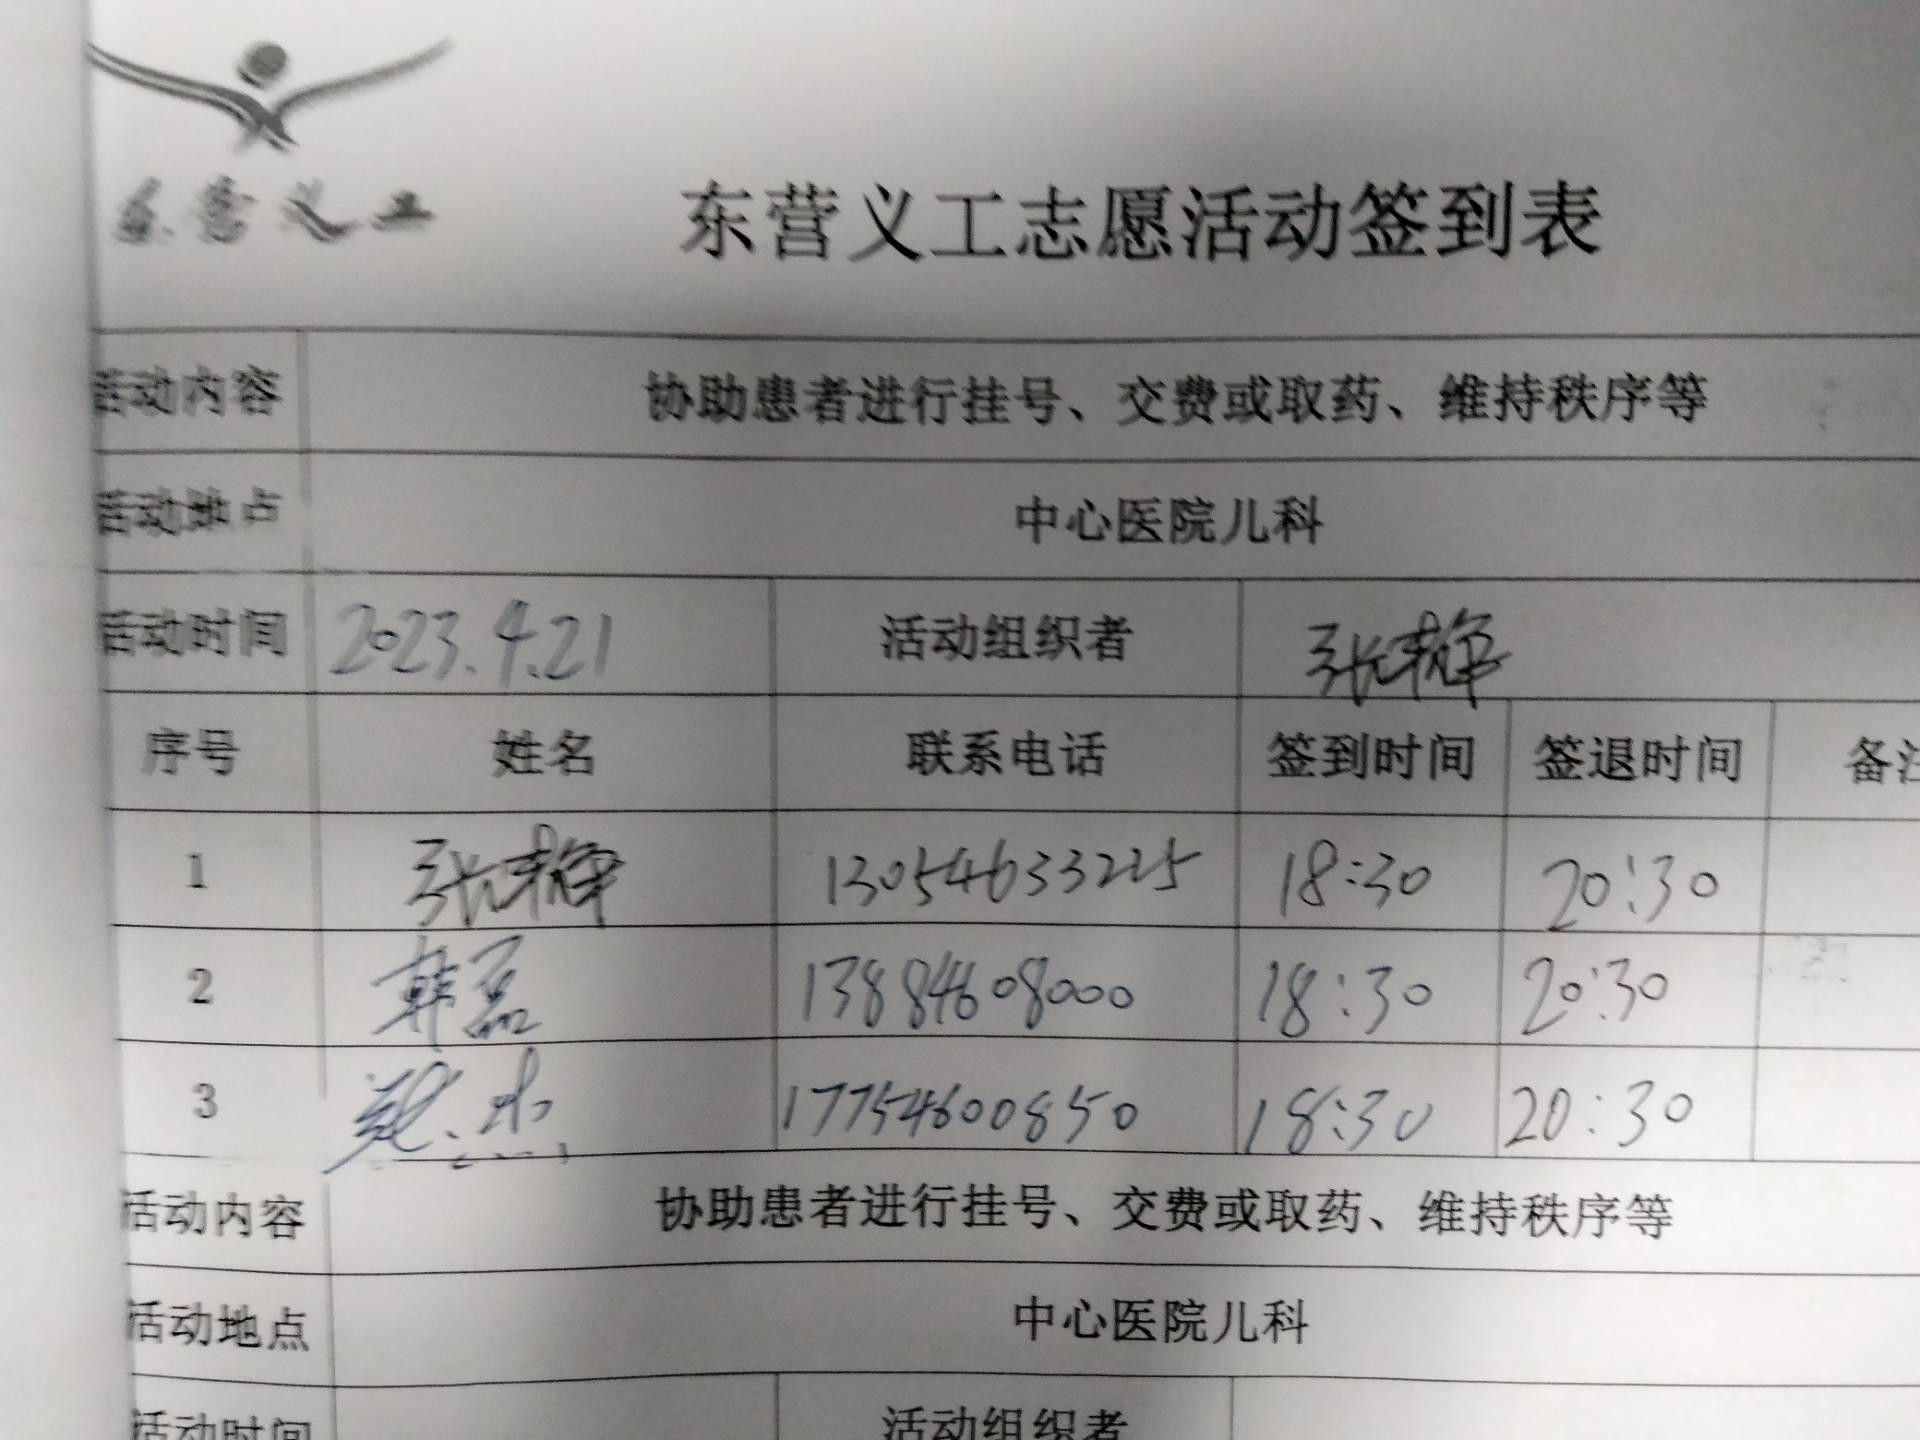 东营义工
东营义工志愿活动签到表
活动内容 协助患者进行挂号、交费或取药、维持秩序等
活动地点 中心医院儿科
活动时间 2023.4.21 活动组织者 张
序号 姓名 联系电话 签到时间 签退时间 备注
1 张 13054633225 18:30 20:30
2 韩磊 13884608000 18:30 20:30
3 17754600850 18:30 20:30
活动内容 协助患者进行挂号、交费或取药、维持秩序等
活动地点 中心医院儿科
活动时间 活动组织者